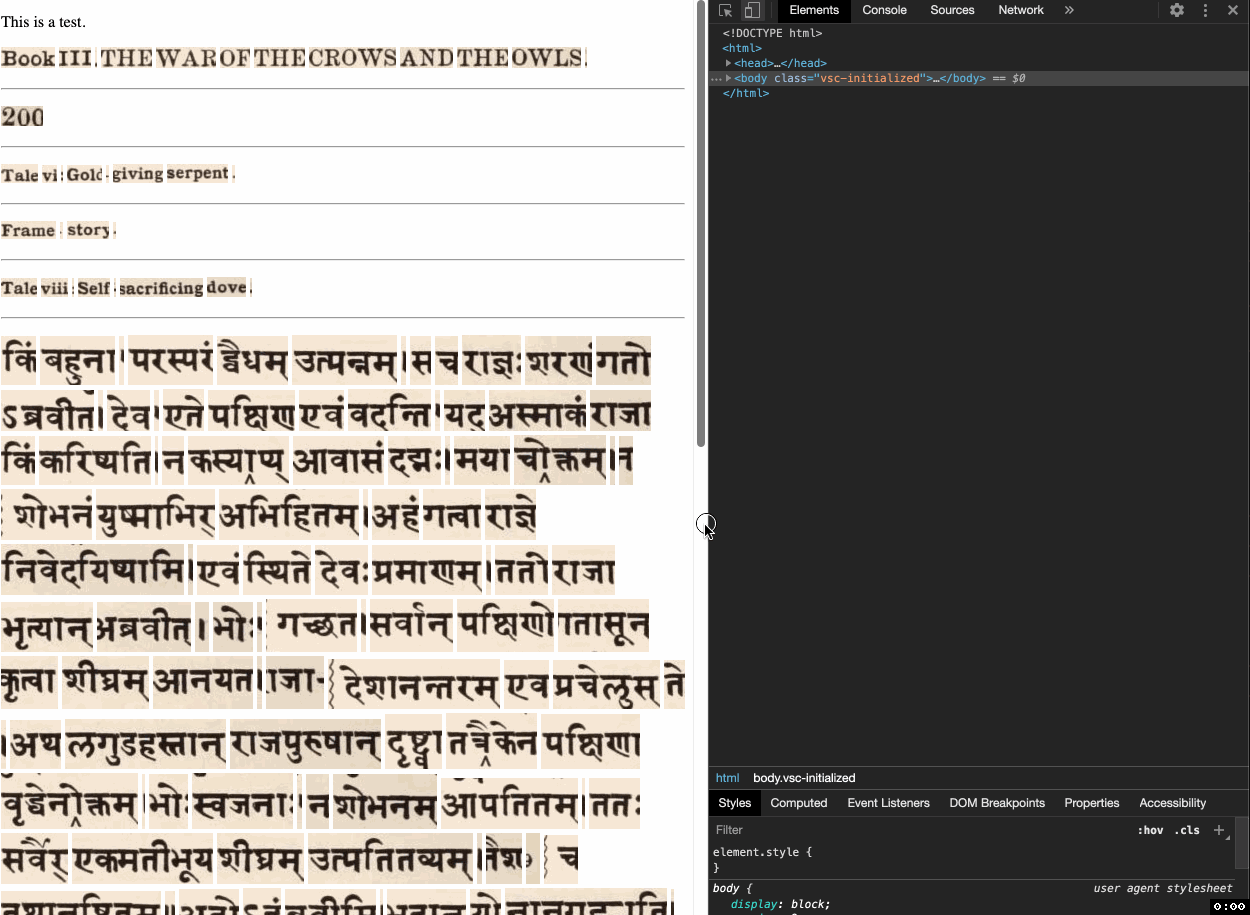 This is a test.
Book III. THE WAR OF THE CROWS AND THE OWLS.
200
Tale vi: Gold-giving serpent.
Frame-story.
Tale viii: Self-sacrificing dove.
किं बहुना । परस्परं द्वैधम् उत्पन्नम् । स च राज्ञः शरणं गतो
ऽब्रवीत् । देव । एते पक्षिण एवं वदन्ति । यद् अस्माकं राजा
किं करिष्यति । न कस्याप्य् आवासं दद्मः । मया चोक्तम् । न
शोभनं युष्माभिर् अभिहितम् । अहं गत्वा राज्ञे
निवेदयिष्यामि । एवं स्थिते देवः प्रमाणम् । ततो राजा
भृत्यान् अब्रवीत् । भोः । गच्छत । सर्वान् पक्षिणो गतासून
कृत्वा शीघ्रम् आनयत । राजा- देशानन्तरम् एव प्रचेलुस् ते
। अथ लगुडहस्तान् राजपुरुषान् दृष्ट्वा तत्रैकेन पक्षिणा
वृद्धेनोक्तम् । भोः स्वजनाः । न शोभनम् आपतितम् । ततः
सर्वैर् एकमतीभूय शीघ्रम् उत्पतितव्यम् । तैश च
Elements Console Sources Network »
<!DOCTYPE html>
<html>
<head>…</head>
<body class="vsc-initialized">…</body> == $0
</html>
html body.vsc-initialized
Styles Computed Event Listeners DOM Breakpoints Properties Accessibility
Filter :hov .cls +
element.style {
}
body { user agent stylesheet
display: block;
0:00